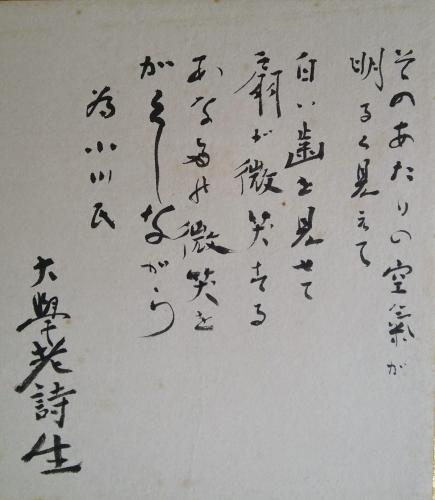 そのあたりの空氣が
明るく見えて
白い歯を見せて
扇が微笑する
あなたの微笑を
かくしながら
為小川氏
大學老詩生